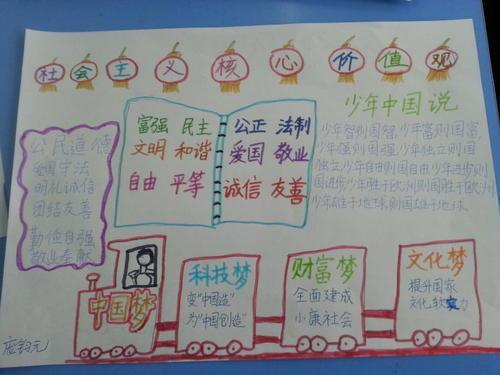 社会主义核心价值观
公民道德
爱国守法
明礼诚信
团结友善
勤俭自强
敬业奉献
富强 民主
文明 和谐
自由 平等
公正 法制
爱国 敬业
诚信 友善
少年中国说
少年智则国强,少年富则国富,
少年强则国强,少年独立则国
独立,少年自由则国自由,少年进步则
国进步,少年胜于欧州则国胜于欧州,
少年雄于地球,则国雄于地球
中国梦
科技梦
变“中国造”
为“中国创造”
财富梦
全面建成
小康社会
文化梦
提升国家
文化软实力